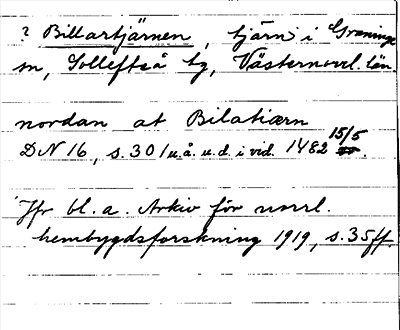 ? Billartjärnen, tjärn i Graninge
sn, Sollefteå tg, Västernorrl. län.
nordan at Bilatiærn
DN 16, s. 301 u.å. u.d. i vid. 1482 15/5.
Jfr bl.a. Arkiv för norrl.
hembygdsforskning 1919, s. 35 ff.